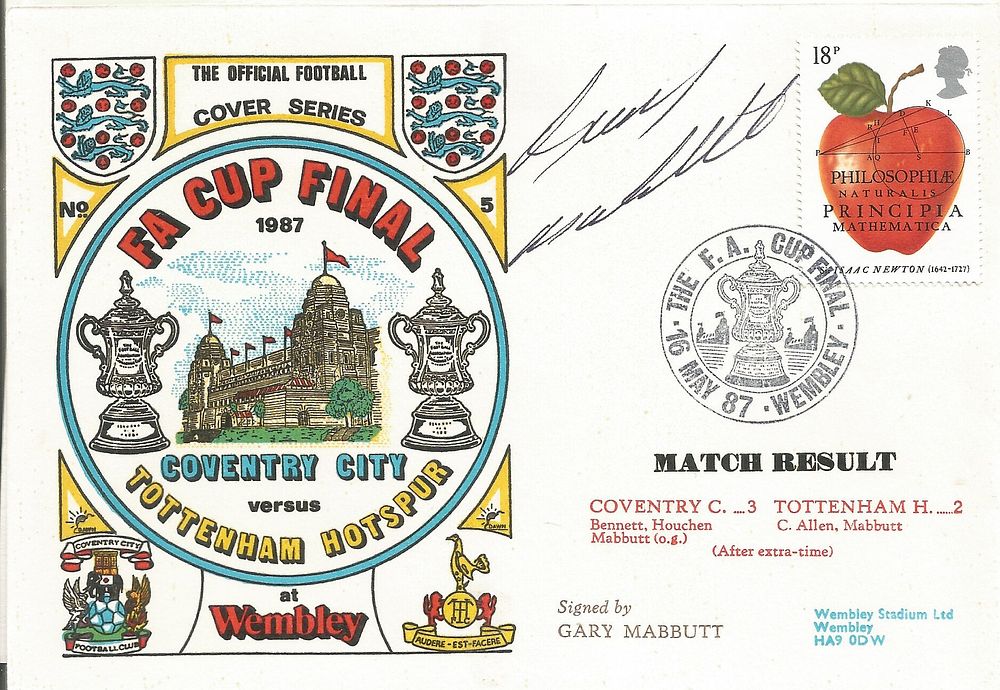 THE OFFICIAL FOOTBALL
COVER SERIES
No. 5
FA CUP FINAL
1987
COVENTRY CITY
versus
TOTTENHAM HOTSPUR
at
Wembley
DAWN
DAWN
COVENTRY CITY
FOOTBALL CLUB
AUDERE-EST-FACERE
Gary
Mabbutt
18P
K
D
L
R
H
F
E
I
P
A
Q
S
B
PHILOSOPHIÆ
NATURALIS
PRINCIPIA
MATHEMATICA
SIR ISAAC NEWTON (1642-1727)
THE F.A. CUP FINAL
16 MAY 87 · WEMBLEY
MATCH RESULT
COVENTRY C. ...3 TOTTENHAM H. .....2
Bennett, Houchen C. Allen, Mabbutt
Mabbutt (o.g.)
(After extra-time)
Signed by
GARY MABBUTT
Wembley Stadium Ltd
Wembley
HA9 0DW